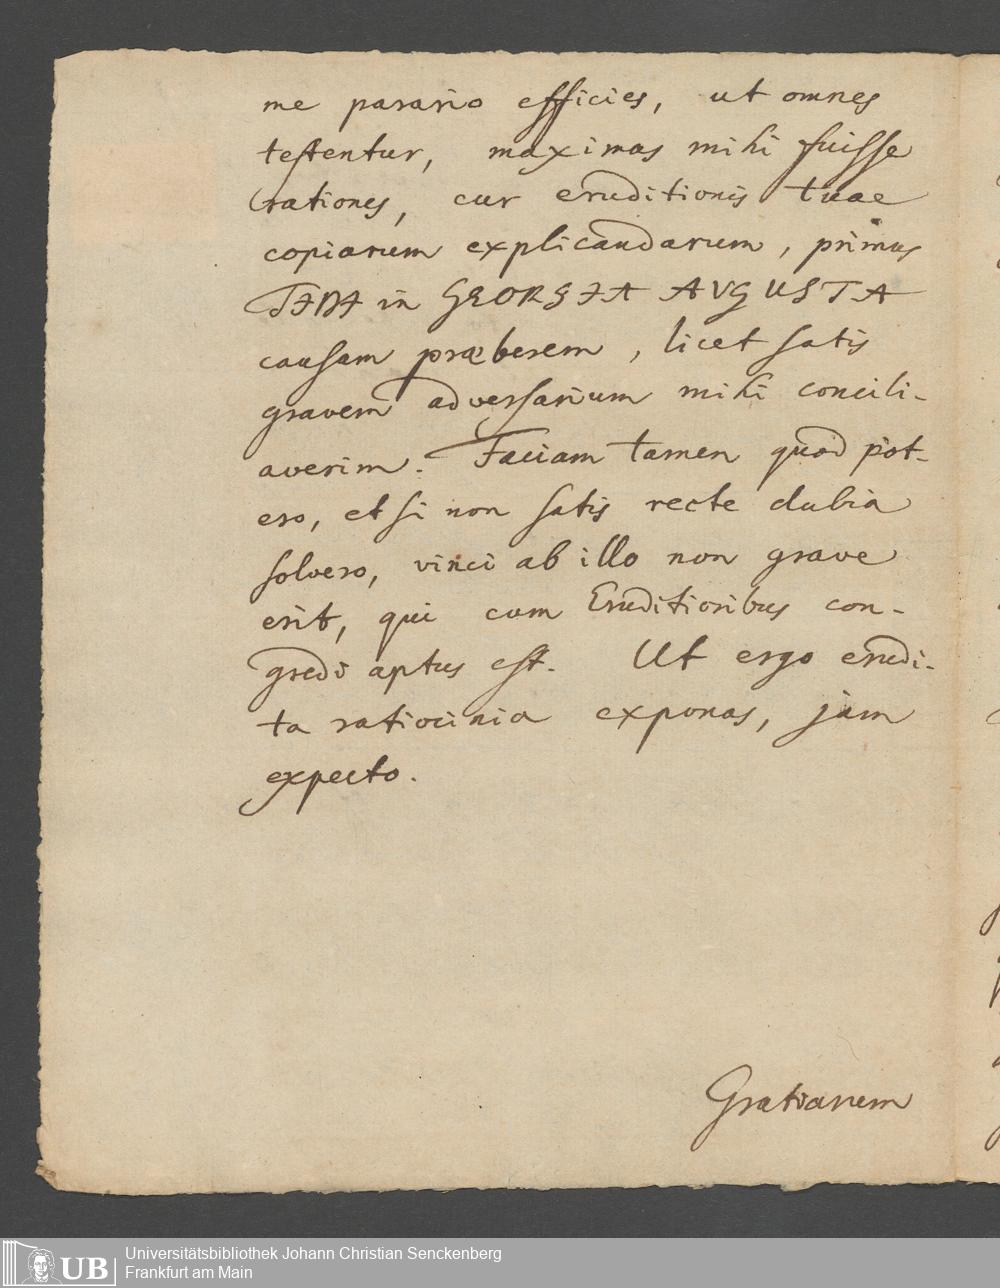 me parario efficies, ut omnes
testentur, maximas mihi fuisse
rationes, cur eruditionis tuae
copiarum explicandarum, primus
TIBI in GEORGIA AVGUSTA
causam præberem, licet satis
gravem adversarium mihi concili-
averim. Faciam tamen quod pot-
ero, et si non satis recte dubia
solvero, vinci ab illo non grave
erit, qui cum Eruditioribus con-
gredi aptus est. Ut ergo erudi-
ta ratiocinia exponas, jam
expecto.
Gratianem
UB
Universitätsbibliothek Johann Christian Senckenberg
Frankfurt am Main